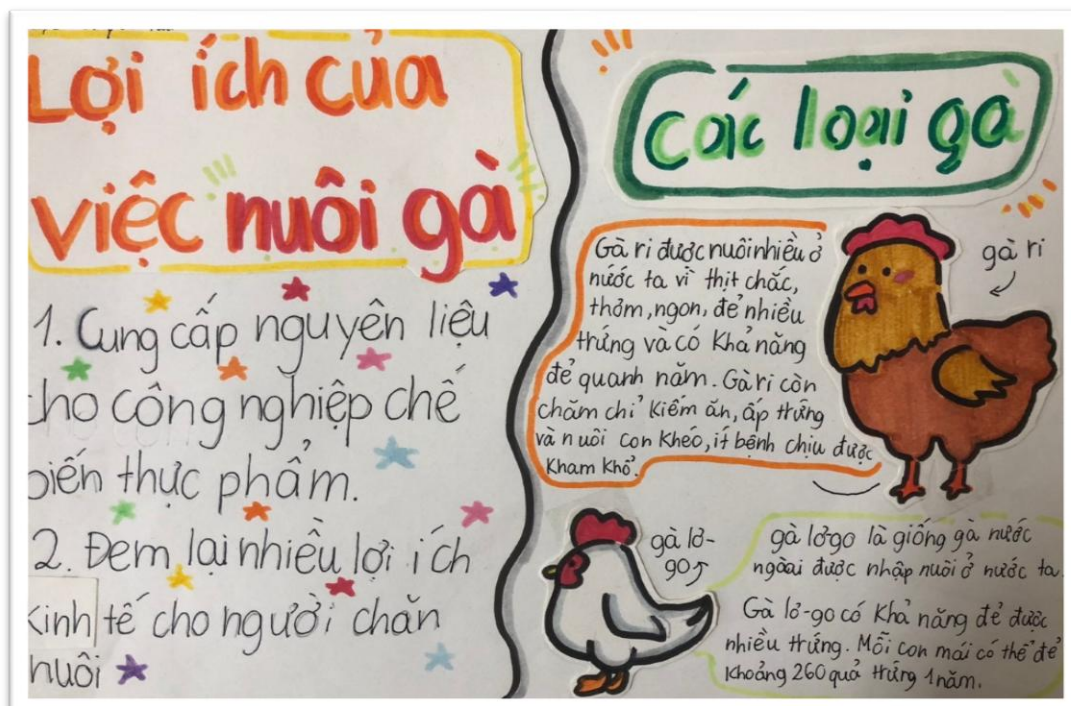 Lợi ích của
việc nuôi gà
1. Cung cấp nguyên liệu
cho công nghiệp chế
biến thực phẩm.
2. Đem lại nhiều lợi ích
Kinh tế cho người chăn
nuôi
Các loại gà
Gà ri được nuôi nhiều ở
nước ta vì thịt chắc,
thơm, ngon, đẻ nhiều
trứng và có Khả năng
đẻ quanh năm. Gà ri còn
chăm chỉ Kiếm ăn, ấp trứng
và nuôi con Khéo, ít bệnh chịu được
Kham Khổ.
gà ri
gà lơ-
go
gà lơ-go là giống gà nước
ngoài được nhập nuôi ở nước ta.
Gà lơ-go có Khả năng đẻ được
nhiều trứng. Mỗi con mái có thể đẻ
Khoảng 260 quả trứng 1 năm.